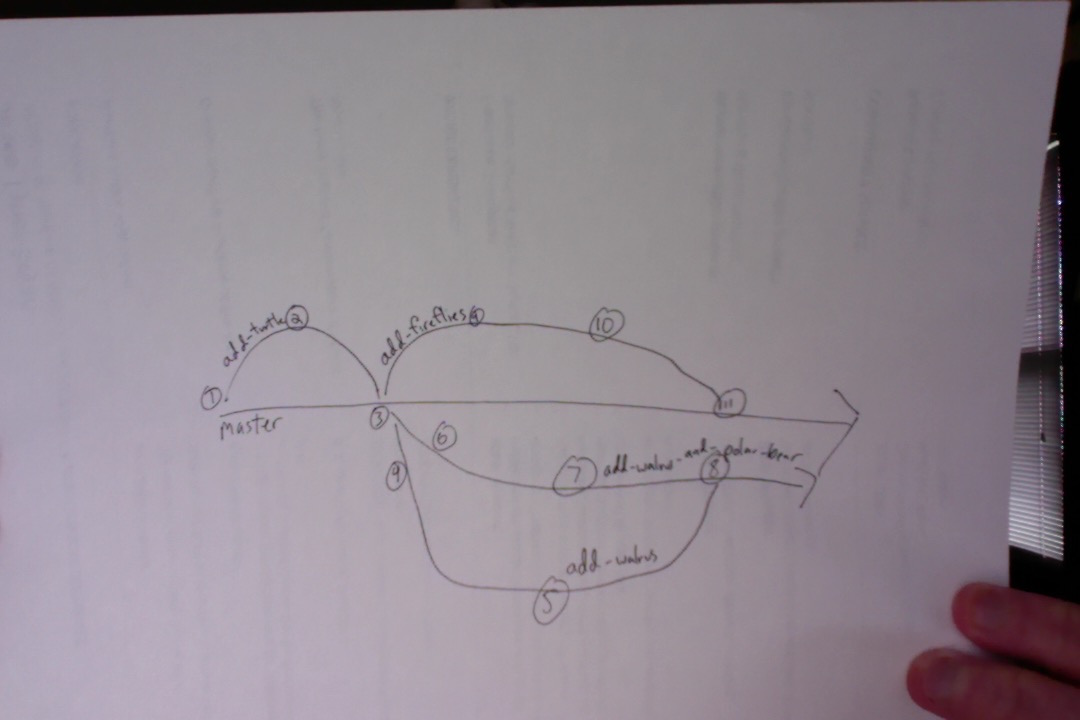 add-turtle
2
add-fireflies
9
10
1
master
3
11
6
4
7
add-walrus-and-polar-bear
8
add-walrus
5